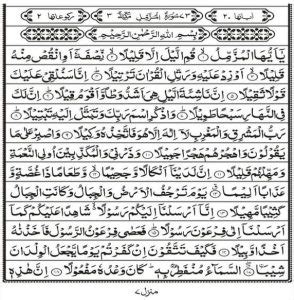 اٰیاتها ٢٠ ٧٣ سُوْرَةُ الْمُزَّمِّلِ مَكِّيَّةٌ ٣ رکوعاتها ٢
بِسْمِ اللّٰهِ الرَّحْمٰنِ الرَّحِيْمِ
يٰٓاَيُّهَا الْمُزَّمِّلُ ۙ قُمِ الَّيْلَ اِلَّا قَلِيْلًا ۙ نِّصْفَهٗٓ اَوِ انْقُصْ مِنْهُ
قَلِيْلًا ۙ اَوْ زِدْ عَلَيْهِ وَرَتِّلِ الْقُرْاٰنَ تَرْتِيْلًا ۗ اِنَّا سَنُلْقِيْ عَلَيْكَ
قَوْلًا ثَقِيْلًا ۞ اِنَّ نَاشِئَةَ الَّيْلِ هِيَ اَشَدُّ وَطْاً وَّاَقْوَمُ قِيْلًا ۗ اِنَّ لَكَ
فِي النَّهَارِ سَبْحًا طَوِيْلًا ۗ وَاذْكُرِ اسْمَ رَبِّكَ وَتَبَتَّلْ اِلَيْهِ تَبْتِيْلًا ۗ
رَبُّ الْمَشْرِقِ وَالْمَغْرِبِ لَآ اِلٰهَ اِلَّا هُوَ فَاتَّخِذْهُ وَكِيْلًا ۞ وَاصْبِرْ عَلٰى مَا
يَقُوْلُوْنَ وَاهْجُرْهُمْ هَجْرًا جَمِيْلًا ۞ وَذَرْنِيْ وَالْمُكَذِّبِيْنَ اُولِي النَّعْمَةِ
وَمَهِّلْهُمْ قَلِيْلًا ۞ اِنَّ لَدَيْنَآ اَنْكَالًا وَّجَحِيْمًا ۙ وَّطَعَامًا ذَا غُصَّةٍ وَّ
عَذَابًا اَلِيْمًا ۗ يَوْمَ تَرْجُفُ الْاَرْضُ وَالْجِبَالُ وَكَانَتِ الْجِبَالُ
كَثِيْبًا مَّهِيْلًا ۞ اِنَّآ اَرْسَلْنَآ اِلَيْكُمْ رَسُوْلًا ۙ شَاهِدًا عَلَيْكُمْ كَمَآ
اَرْسَلْنَآ اِلٰى فِرْعَوْنَ رَسُوْلًا ۗ فَعَصٰى فِرْعَوْنُ الرَّسُوْلَ فَاَخَذْنٰهُ
اَخْذًا وَّبِيْلًا ۞ فَكَيْفَ تَتَّقُوْنَ اِنْ كَفَرْتُمْ يَوْمًا يَّجْعَلُ الْوِلْدَانَ
شِيْبًا ۖ السَّمَآءُ مُنْفَطِرٌۢ بِهٖ ؕ كَانَ وَعْدُهٗ مَفْعُوْلًا ۞ اِنَّ هٰذِهٖ
منزل ٧